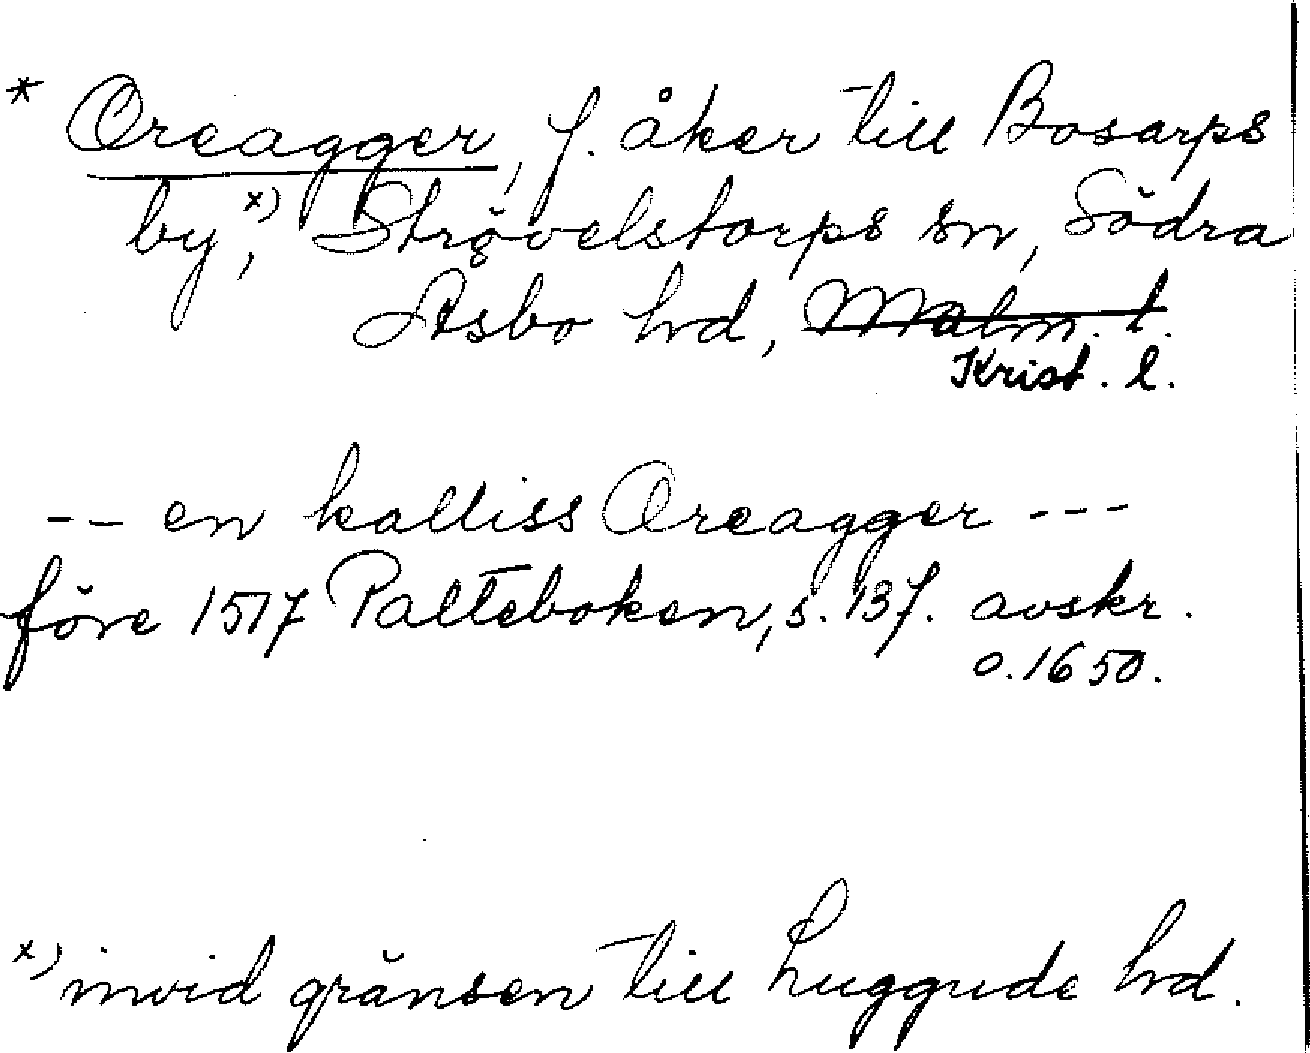 * Oreagger, f. åker till Bosarps
by,x) Strövelstorps sn, Södra
Åsbo hd, Malm. l.
Krist. l.
-- en kalliss Oreagger ---
före 1517 Palteboken, s. 137. avskr.
o. 1650.
x) invid gränsen till Luggude hd.